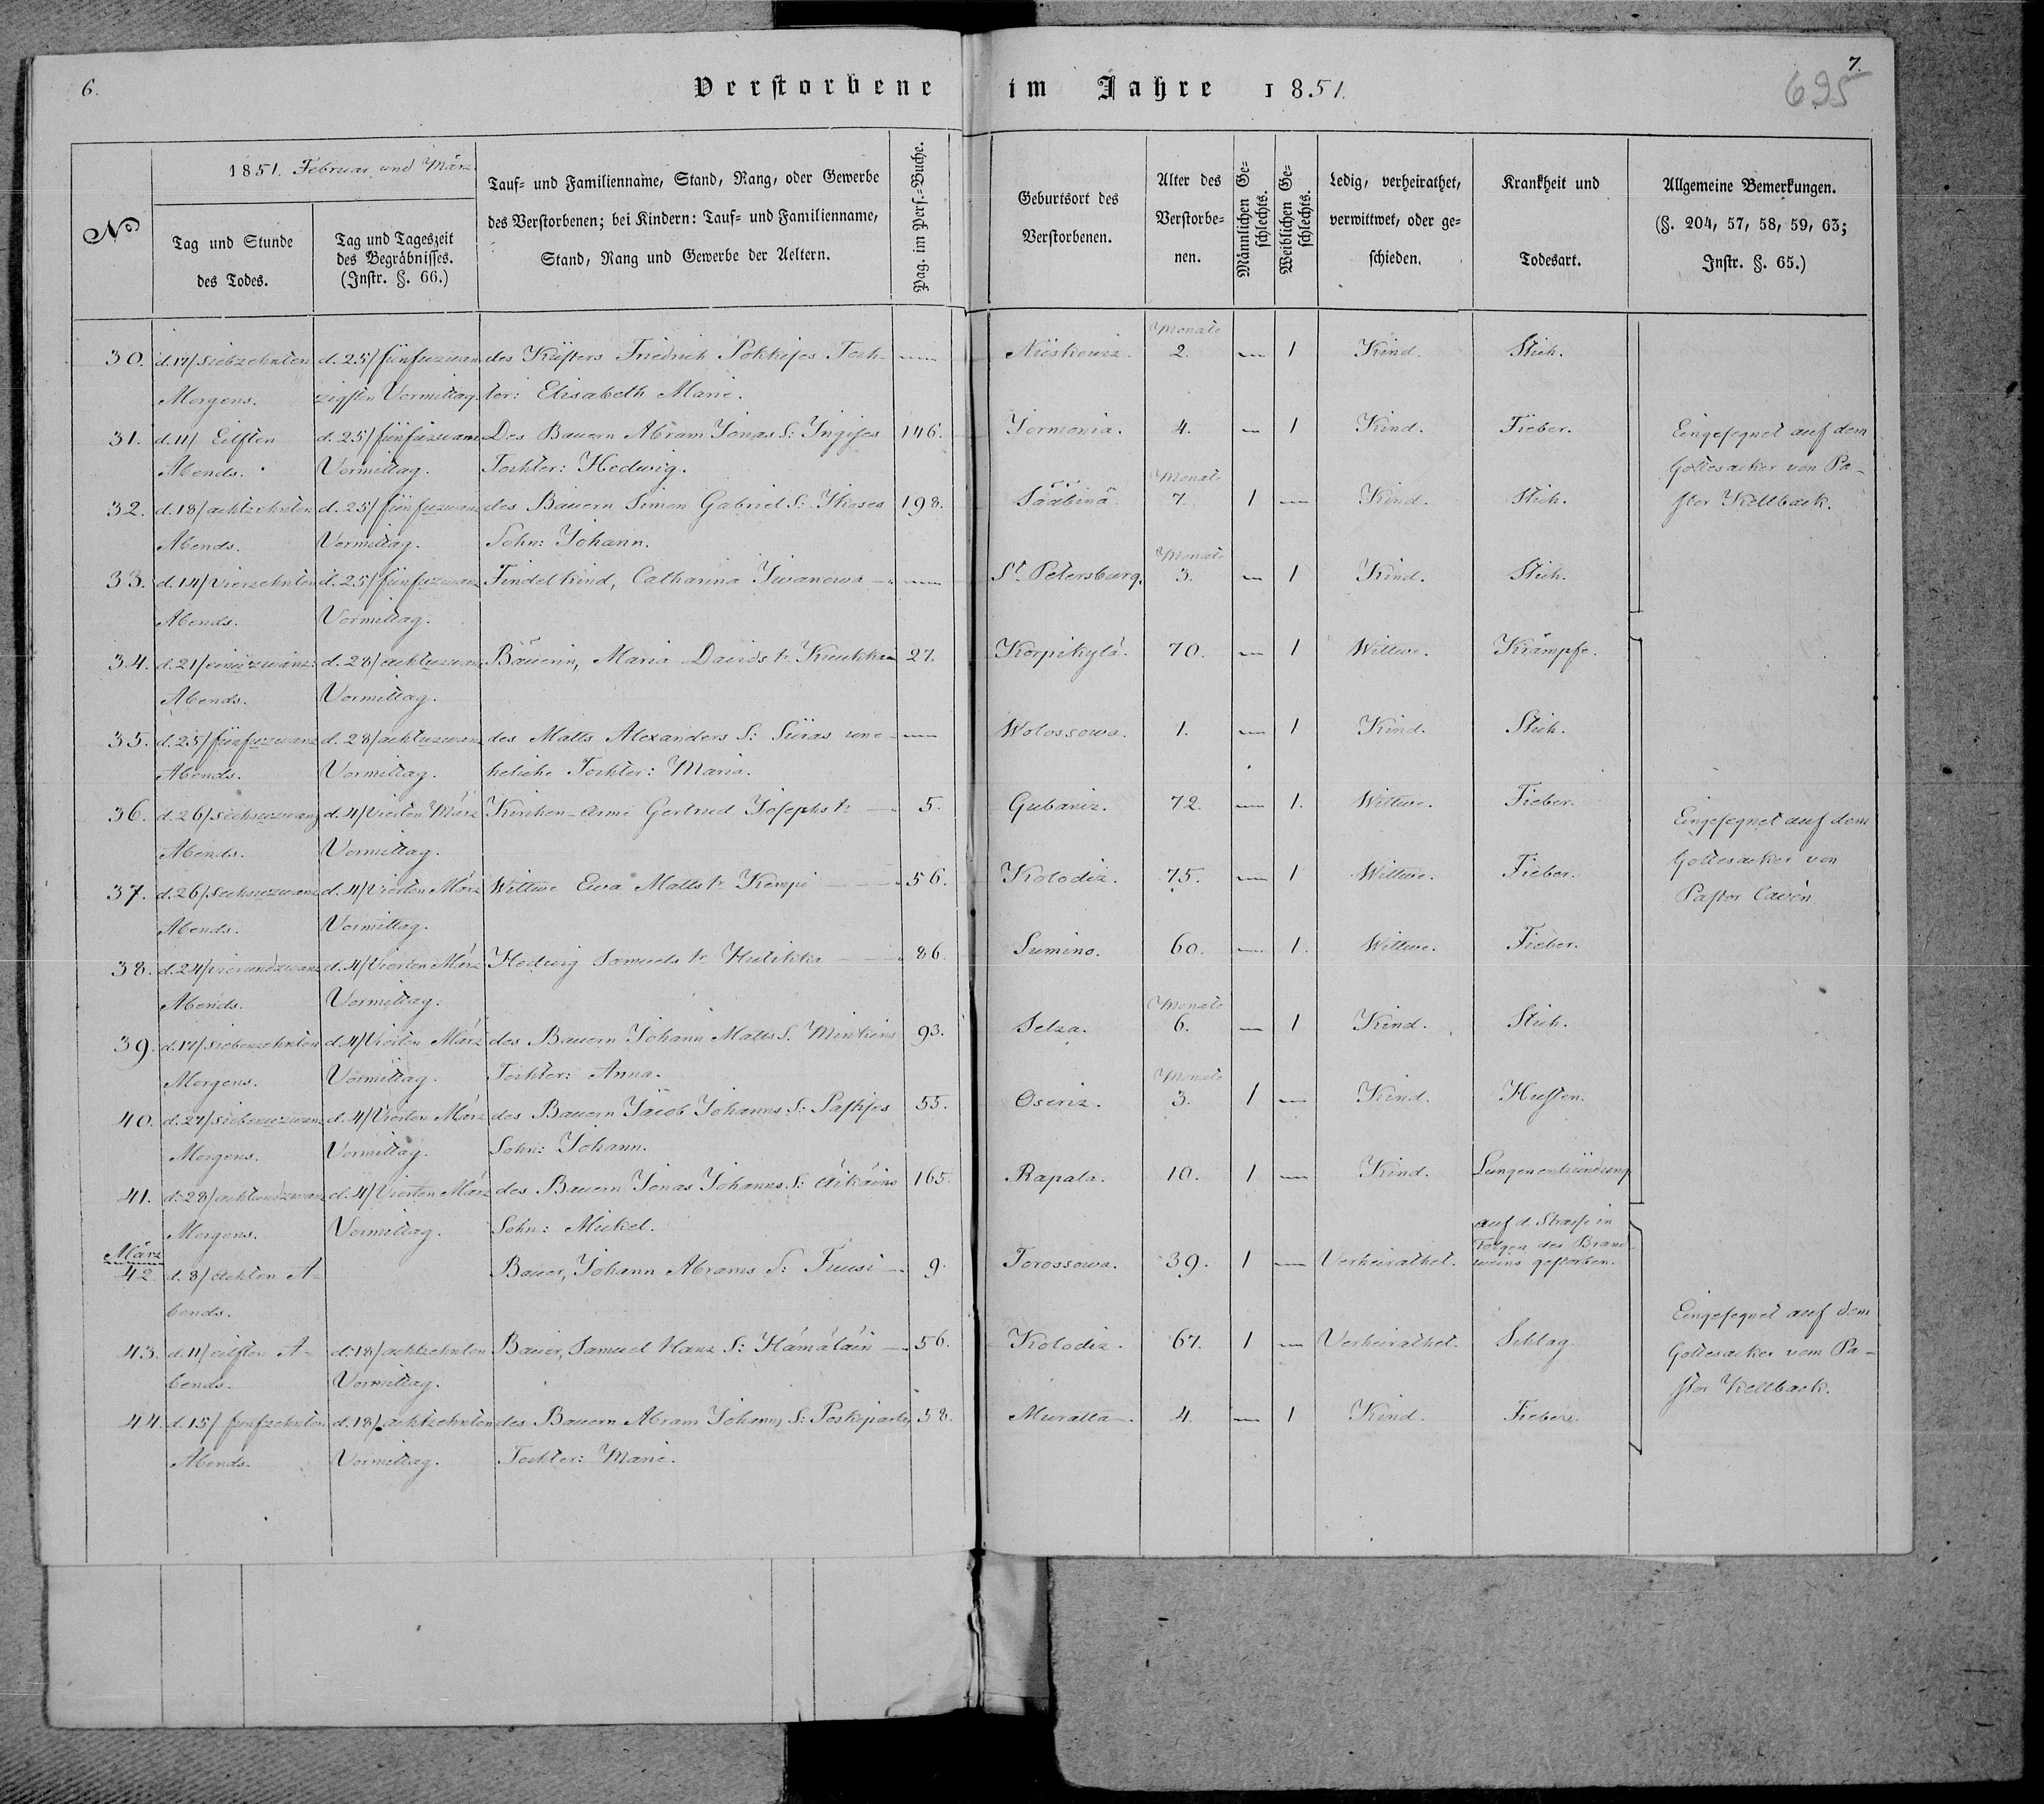 6.
Verstorbene im Jahre 1851.
7.
695
No
1851. Februar und März.
Tag und Stunde
des Todes.
Tag und Tageszeit
des Begräbnisses.
(Instr. §. 66.)
Tauf- und Familienname, Stand, Rang, oder Gewerbe
des Verstorbenen; bei Kindern: Tauf- und Familienname,
Stand, Rang und Gewerbe der Aeltern.
Pag. im Pers.-Buche.
Geburtsort des
Verstorbenen.
Alter des
Verstorbe-
nen.
Männlichen Ge-
schlechts.
Weiblichen Ge-
schlechts.
Ledig, verheirathet,
verwittwet, oder ge-
schieden.
Krankheit und
Todesart.
Allgemeine Bemerkungen.
(§. 204, 57, 58, 59, 63;
Instr. §. 65.)
Monate
30. d. 17/ siebzehnten d. 25/ fünfuzwan des Küsters Friedrich Pokkises Toch- — Niiskowiz. 2. — 1 Kind. Stich.
Morgens. zigsten Vormittag. ter: Elisabeth Marie.
31. d. 11/ Eilften d. 25/ fünfuzwan Des Bauern Abram Jonas S: Ingises 146. Jormonia. 4. — 1 Kind. Fieber. Eingesegnet auf dem
Abends. Vormittag. Tochter: Hedwig. Gottesacker von Pa-
Monate
32. d. 18/ achtzehnten d. 25/ fünfuzwanz des Bauern Simon Gabriel S: Ikoses 198. Sääbinä. 7. 1 — Kind. Stich. stor Kellback.
Abends. Vormittag. Sohn: Johann.
Monate
33. d. 14/ Vierzehnten d. 25/ fünfuzwanz Findelkind, Catharina Iwanowa — — St. Petersburg. 3. — 1 Kind. Stich.
Abends. Vormittag.
34. d. 21/ einuzwanz: d. 28/ achtuzwanz Bäuerin, Maria Davids tr 27. Korpikylä. 70. — 1 Wittwe. Krämpfe.
Abends. Vormittag.
35. d. 25/ fünfuzwanz d. 28/ achtuzwanz des Matts Alexanders S: Süras une- — Wolossowa. 1. — 1 Kind. Stich.
Abends. Vormittag. heliche Tochter: Maria.
36. d. 26/ sechsuzwanz d. 4/ Vierten März Kirchen-Arme Gertrud Josephs tr — 5. Gubaniz. 72. — 1. Wittwe. Fieber. Eingesegnet auf dem
Abends. Vormittag. Gottesacker von
37. d. 26/ sechsuzwanz d. 4/ Vierten März Wittwe Ewa Matts tr Kempi — 56. Kolodiz. 75. — 1 Wittwe. Fieber. Pastor Cavén
Abends. Vormittag.
38. d. 24/ vierundzwanz d. 4/ Vierten März Hedwig Samuels tr Hutikka — 86. Sumino. 60. — 1. Wittwe. Fieber.
Abends. Vormittag.
Monate
39. d. 17/ siebenzehnten d. 4/ Vierten März des Bauern Johann Matts S. Minkins 93. Selza. 6. — 1 Kind. Stich.
Morgens. Vormittag. Tochter: Anna.
Monate
40. d. 27/ siebenuzwanz d. 4/ Vierten März des Bauern Jacob Johanns S: Paskjes 55. Oseriz. 3. 1 — Kind. Husten.
Morgens. Vormittag. Sohn: Johann.
41. d. 28/ achtundzwanz d. 4/ Vierten März des Bauern Jonas Johanns S: Äikäins 165. Rapala. 10. 1 — Kind. Lungenentzündung.
Morgens. Vormittag. Sohn: Mickel.
März auf d. Strasse in
Folgen des Brand-
42. d. 8/ achten A- Bauer, Johann Abrams S: Tuusi — 9. Torossowa. 39. 1 — Verheirathet. weins gestorben.
bends. Eingesegnet auf dem
43. d. 11/ eilften A- d. 18/ achtzehnten Bauer, Samuel Hans S: Hämäläin — 56. Kolodiz. 67. 1 — Verheirathet. Schlag. Gottesacker vom Pa-
bends. Vormittag. stor Kellback.
44. d. 15/ funfzehnten d. 18/ achtzehnten des Bauern Abram Johanns S: Poskiparta 58. Muratta. 4. — 1 Kind. Fieber.
Abends. Vormittag. Tochter: Marie.